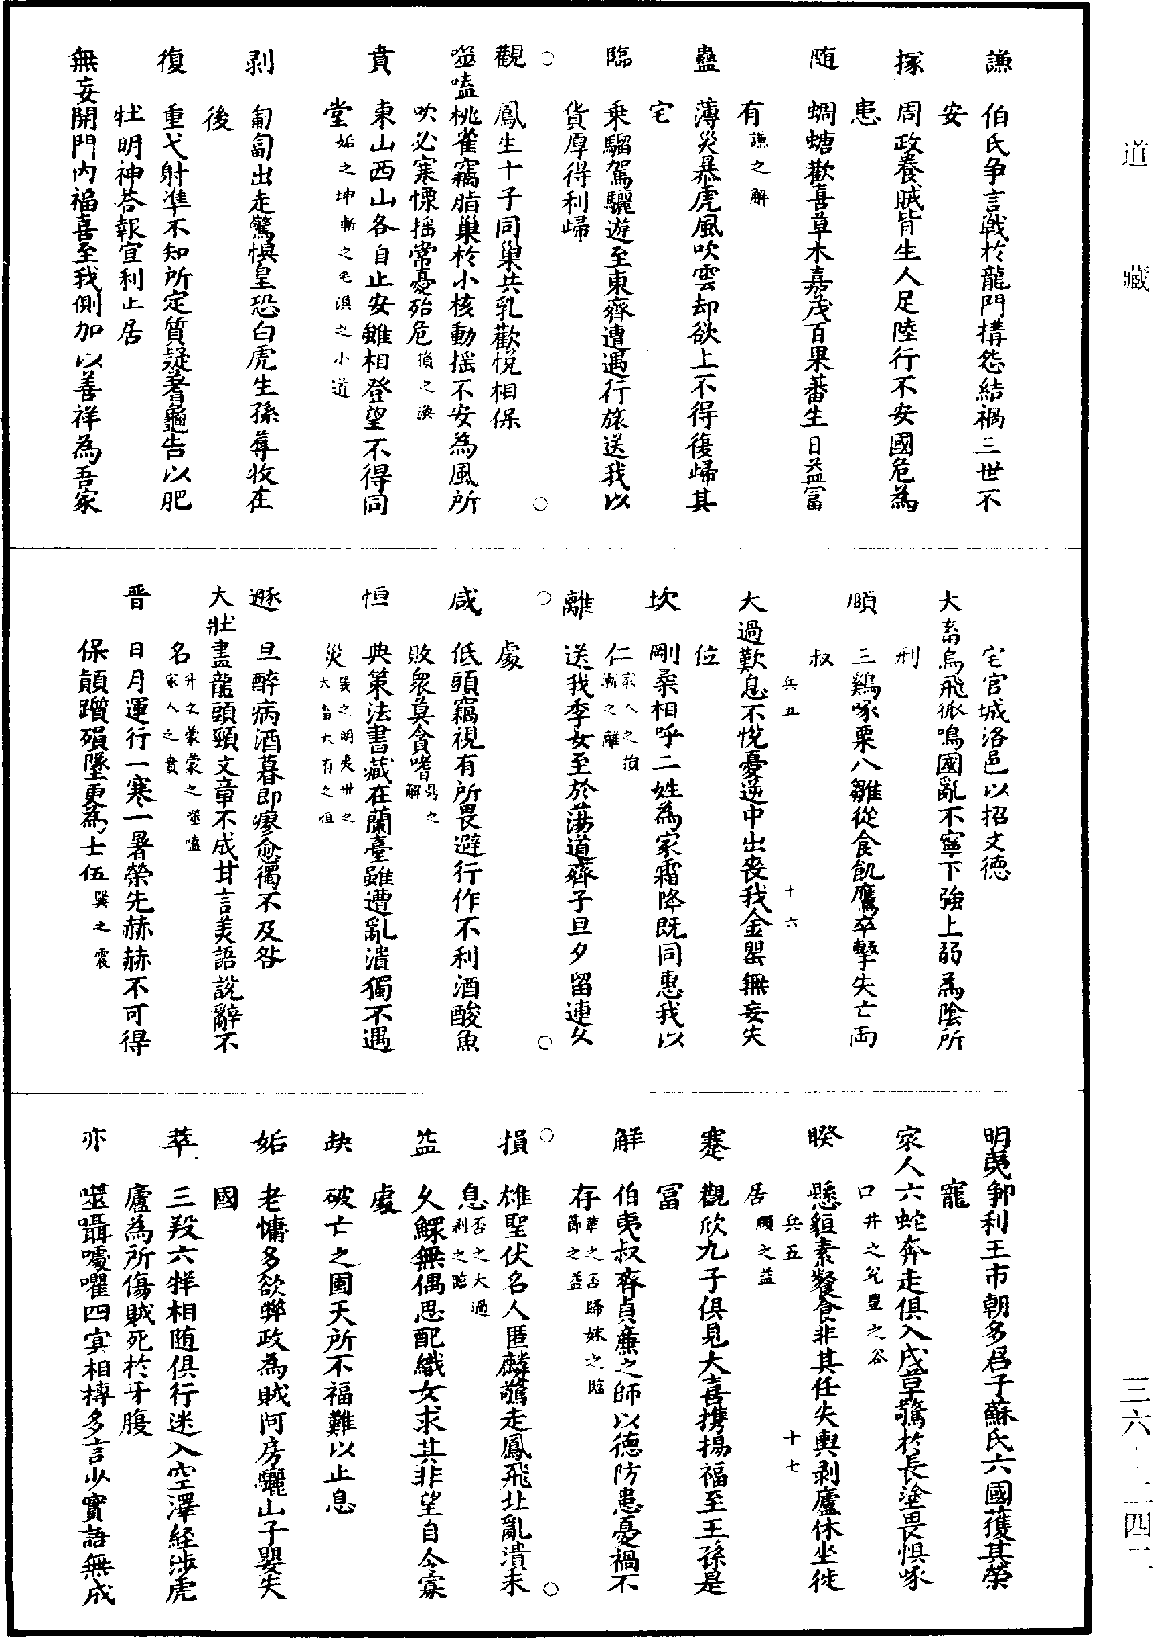 謙　伯氏争言戟於龍門構怨結禍三世不
安
豫　周政養賊背生人足陸行不安國危為
患
随　蜩螗歡喜草木嘉茂百果蕃生日益富
有謙之解
蠱　薄災暴虎風吹雲却欲上不得復歸其
宅
臨　乗騮駕驪遊至東齊遭遇行旅送我以
貨厚得利歸
○　○
觀　鳳生十子同巢共乳歡悅相保
噬嗑桃雀竊脂巢於小核動揺不安為風所
吹必寒慄揺常憂殆危
賁　東山西山各自止安雖相登望不得同
堂姤之坤漸之屯渙之小過
剥　匍匐出走驚惧皇恐白虎生孫蓐收在
後
復　重弋射凖不知所定質疑蓍龜告以肥
牡明神答報宜利止居
無妄開門内福喜至我側加以善祥為吾家
宅宮城洛邑以招文徳
大畜烏飛狐鳴國亂不寧下強上弱為陰所
刑
頤　三鷄啄粟八雛從食飢鷹卒擊失亡両
叔
兵五　十六
大過歎息不悅憂逆中出喪我金罌無妄失
位
坎　剛柔相呼二姓為家霜降既同惠我以
仁家人之損漸之離
離　送我季女至於蕩道齊子旦夕留連久
處
○　○
咸　低頭竊視有所畏避行作不利酒酸魚
敗衆莫貪嗜之解
恒　典策法書藏在蘭臺雖遭亂潰獨不遇
災巽之明夷升之大畜大有之恒
遯　旦醉病酒暮即瘳愈獨不及咎
大壯畫龍頭頸文章不成甘言美語說辭不
名升之蒙蒙之噬嗑家人之賁
晋　日月運行一寒一暑榮先赫赫不可得
保顛躓殞墜更為士伍巽之震
明夷郵利王市朝多君子蘇氏六國獲其榮
寵
家人六蛇奔走俱入茂草驚於長塗畏惧啄
口井之兊豊之谷
睽　懸貆素餐食非其任失輿剥廬休坐徙
兵五　十七
居頤之益
蹇　觀欣九子俱見大喜携揚福至王孫是
富
解　伯夷叔齊貞廉之師以德防患憂禍不
存革之否歸妹之臨節之益
○　○
損　雄聖伏名人匿麟驚走鳳飛北亂潰未
息否之大過剥之臨
益　久鰥無偶思配織女求其非望自令寡
處
缺　破亡之國天所不福難以止息
姤　老慵多欲弊政為賊阿房驪山子嬰失
國
萃　三殺六牂相随俱行迷入空澤経涉虎
廬為所傷賊死於牙腹
亦　噬囁嚘嚁四寡相搏多言少實語無成
道藏